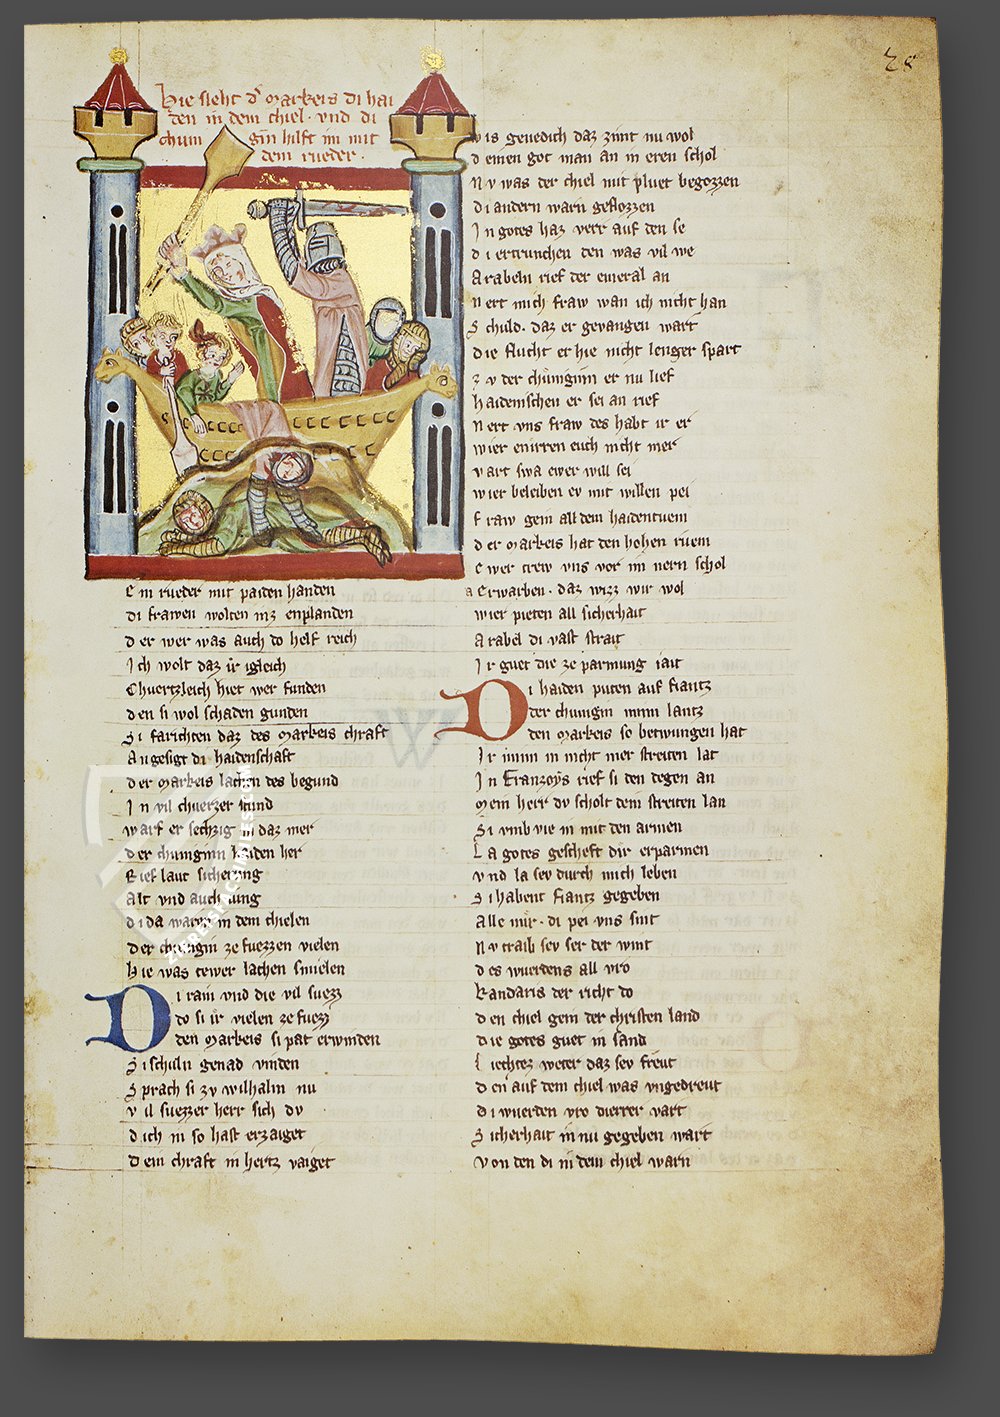 28
Hie slecht dˢ Markeis di hai
den in dem chiel · vnd di
chuni gin hilft im mit
dem rueder ·
Ein rueder mit paiden handen
di frawen wolten inz enplanden
der wer was auch do helf reich
Ich wolt daz ir igleich
Chuertzleich hiet wer funden
den si wol schaden gunden
Si farichten daz des Markeis chraft
Angesigt di haidenschaft
der Markeis lachen des begund
In vil chuerzer stund
warf er sechzig in daz mer
der chuniginn haiden her
Rief laut sicherung
Alt vnd auch iung
di da warn in dem chielen
der chunigin ze fuezzen vielen
Hie was tewer lachen smielen
Di rain vnd die vil suezz
do si ir vielen ze fuezz
den Markeis si pat erwinden
Si schuln genad vinden
Sprach si zv wilhalm nu
vil suezzer herr sich dv
dich in so hast erzaiget
dein chraft in hertz vaiget
wis genedich daz zimt nu wol
deinen got man an in eren schol
Nv was der chiel mit pluet begozzen
di andern warn geflozzen
In gotes haz verr auf den se
di ertrunchen den was vil we
Arabeln rief der emeral an
nert mich fraw wan ich nicht han
Schuld · daz er gevangen wart
die flucht er hie nicht lenger spart
zv der chuniginn er nu lief
haidenischen er sei an rief
Nert vns fraw des habt ir er
wier enirren euch nicht mer
vart swa ewer will sei
wier beleiben ev mit willen pei
fraw gein all dem haidentuem
der Markeis hat den hohen ruem
ewer trew vns vor im nern schol
a Erwarben · daz wizz wir wol
wier pieten all sicherhait
Arabel di vast strait
Ir guet die ze parmung iait
Di haiden puten auf fiantz
der chunigin minn lantz
den Markeis so betwungen hat
Ir minn in nicht mer streiten lat
In Franzoys rief si den degen an
Mein herr dv scholt dein streiten lan
Si vmb vie in mit den armen
La gotes gescheft dir erparmen
vnd la sev durch mich leben
Si habent fiantz gegeben
Alle mir · di pei vns sint
Nv traib sev ser der wint
des wuerdens all vro
Kandaris der richt do
den chiel gein der christen land
die gotes guet in sand
Liechtez weter daz sev freut
den auf dem chiel was vngedreut
di wuerden vro dierrer vart
Sicherhait in nu gegeben wart
von den di in dem chiel warn
ZEREFACIMILES.COM